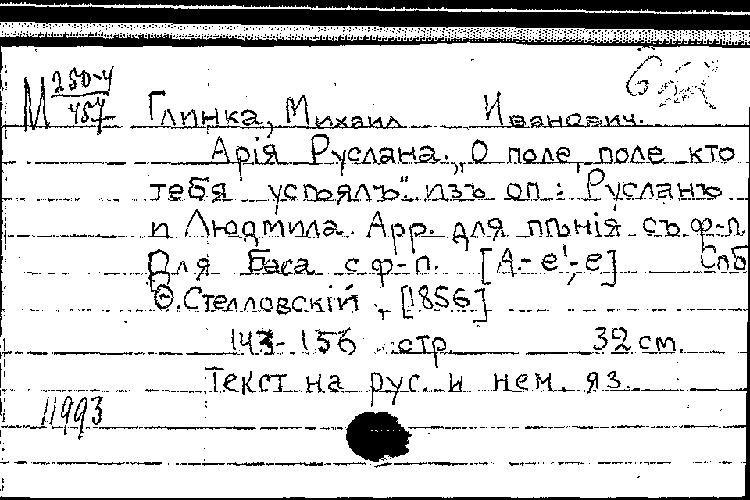 М 250-4
457
Глинка, Михаил Иванович.
Арія Руслана. „О поле, поле кто
тебя усѣялъ". изъ оп: Русланъ
и Людмила. Арр. для пѣнія съ ф-п.
Для баса с ф-п. [A-e'; e] Спб
Ѳ. Стелловскій, [1856]
143-156 стр. 32 см.
Текст на рус. и нем. яз.
11993